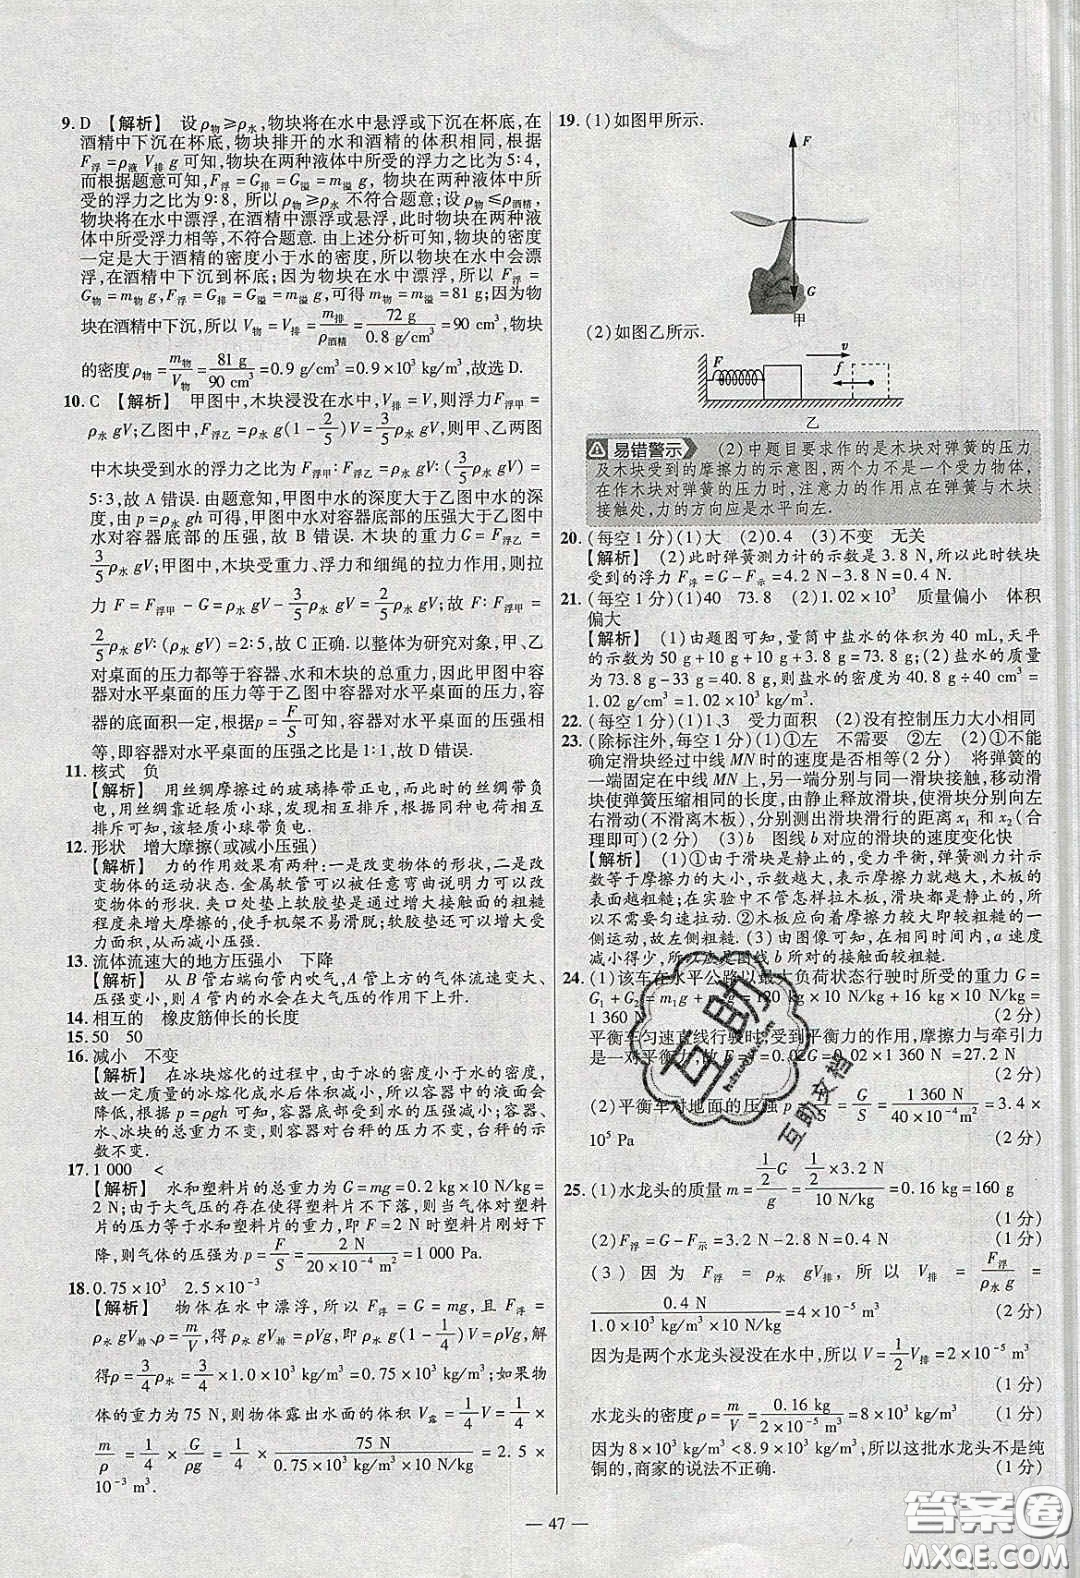 9. D 【解析】 设 ρ物≥ρ水,物块将在水中悬浮或下沉在杯底,在
酒精中下沉在杯底,物块排开的水和酒精的体积相同. 根据
F浮=ρ液 V排 g 可知,物块在两种液体中所受的浮力之比为5∶4,
而根据题意可知,F浮=G排=G溢=m溢 g,物块在两种液体中所
受的浮力之比为9∶8, 所以 ρ物≥ρ水 不符合题意;设 ρ物≤ρ酒精,
物块将在水中漂浮,在酒精中漂浮或悬浮,此时物块在两种液
体中所受浮力相等,不符合题意. 由上述分析可知,物块的密度
一定是大于酒精的密度小于水的密度,所以物块在水中会漂
浮,在酒精中下沉到杯底;因为物块在水中漂浮,所以 F浮=
G物=m物 g,F浮=G排=G溢=m溢 g,可得 m物=m溢=81 g;因为物
块在酒精中下沉,所以 V物=V排=m排/ρ酒精=72 g/0.8 g/cm³=90 cm³,物块
的密度 ρ物=m物/V物=81 g/90 cm³=0.9 g/cm³=0.9×10³ kg/m³,故选 D.
10. C 【解析】 甲图中,木块浸没在水中,V排=V,则浮力 F浮甲=
ρ水 gV;乙图中,F浮乙=ρ水 g(1-2/5)V=3/5ρ水 gV,则甲、乙两图
中木块受到水的浮力之比为 F浮甲∶F浮乙=ρ水 gV∶(3/5ρ水 gV)=
5∶3,故 A 错误. 由题意知,甲图中水的深度大于乙图中水的深
度,由 p=ρ水 gh 可得,甲图中水对容器底部的压强大于乙图中
水对容器底部的压强,故 B 错误. 木块的重力 G=F浮乙=
3/5ρ水 gV;甲图中,木块受重力、浮力和细绳的拉力作用,则拉
力 F=F浮甲-G=ρ水 gV-3/5ρ水 gV=2/5ρ水 gV;故 F∶G=
2/5ρ水 gV∶(3/5ρ水 gV)=2∶5,故 C 正确. 以整体为研究对象,甲、乙
对桌面的压力都等于容器、水和木块的总重力,因此甲图中容
器对水平桌面的压力等于乙图中容器对水平桌面的压力,容
器的底面积一定,根据 p=F/S可知,容器对水平桌面的压强相
等,即容器对水平桌面的压强之比是1∶1,故 D 错误.
11. 核式 负
【解析】 用丝绸摩擦过的玻璃棒带正电,而此时的丝绸带负
电,用丝绸靠近轻质小球,发现相互排斥,根据同种电荷相互排
斥可知,该轻质小球带负电.
12. 形状 增大摩擦(或减小压强)
【解析】 力的作用效果有两种:一是改变物体的形状,二是改
变物体的运动状态. 金属软管可以被任意弯曲说明力可以改
变物体的形状. 夹口处垫上软胶垫是通过增大接触面的粗糙
程度来增大摩擦的,使手机架不易滑脱;软胶垫还可以增大受
力面积,从而减小压强.
13. 流体流速大的地方压强小 下降
【解析】 从 B 管右端向管内吹气,A 管上方的气体流速变大、
压强变小,则 A 管内的水会在大气压的作用下上升.
14. 相互的 橡皮筋伸长的长度
15. 50 50
16. 减小 不变
【解析】 在冰块熔化的过程中,由于冰的密度小于水的密度,
故一定质量的冰熔化成水后体积减小,所以容器中的液面会
降低,根据 p=ρgh 可知,水对容器底部的压强减小;容器、
水、冰块的总重力不变,则容器对台秤的压力不变,台秤的示
数不变.
17. 1 000 <
【解析】 水和塑料片的总重力为 G=mg=0.2 kg×10 N/kg=
2 N;由于大气压的存在使得塑料片不下落,则大气对塑料
片的压力等于水和塑料片的重力,即 F=2 N时塑料片刚好下
降,则气体的压强为 p=F/S=2 N/20×10⁻⁴ m²=1 000 Pa.
18. 0.75×10³ 2.5×10⁻³
【解析】 物体在水中漂浮,所以 F浮=G=mg,且 F浮=
ρ水 gV排、ρ=m/V,得 ρ水 gV排=ρVg,即 ρ水 g(1-1/4)V=ρVg,解
得ρ=3/4ρ水=3/4×1.0×10³ kg/m³=0.75×10³ kg/m³;如果物
体的重力为 75 N,则物体露出水面的体积 V露=1/4V=1/4×
m/ρ=1/4×G/ρg=1/4×75 N/0.75×10³ kg/m³×10 N/kg=2.5×
10⁻³ m³.
19. (1)如图甲所示.
F
G
甲
(2)如图乙所示.
F
v
f
乙
易错警示 (2)中题目要求作的是木块对弹簧的压力
及木块受到的摩擦力的示意图,两个力不是一个受力物体,
在作木块对弹簧的压力时,注意力的作用点在弹簧与木块
接触处,力的方向应是水平向左.
20. (每空 1 分)(1)大 (2)0.4 (3)不变 无关
【解析】 (2)此时弹簧测力计的示数是 3.8 N,所以此时铁块
受到的浮力 F浮=G-F示=4.2 N-3.8 N=0.4 N.
21. (每空 1 分)(1)40 73.8 (2)1.02×10³ 质量偏小 体积
偏大
【解析】 (1)由题图可知,量筒中盐水的体积为 40 mL,天平
的示数为 50 g+10 g+10 g+3.8 g=73.8 g;(2)盐水的质量
为 73.8 g-33 g=40.8 g,则盐水的密度为 40.8 g÷40 cm³=
1.02 g/cm³=1.02×10³ kg/m³.
22. (每空 1 分)(1)1、3 受力面积 (2)没有控制压力大小相同
23. (除标注外,每空 1 分)(1)①左 不需要 ②左 (2)①不能
确定滑块经过中线 MN 时的速度是否相同(2 分) 将弹簧的
一端固定在中线 MN 上,另一端分别与滑块接触,移动滑
块使弹簧压缩相同的长度,由静止释放滑块,使滑块分别向左
右滑动(不滑离木板),分别测出滑块滑行的距离 x₁ 和 x₂(合
理即可)(2 分) (3)b 图线 b 对应的滑块的速度变化快
【解析】 (1)①由于滑块是静止的,受力平衡,弹簧测力计示
数等于摩擦力的大小,示数越大,摩擦力就越大,木板的
表面越粗糙;在实验中不管怎样拉动木板,滑块都静止,所
以不需要匀速拉动. ②木板应向着摩擦力较大即较粗糙的一
侧运动,故左侧粗糙. (3)由图像可知,在相同时间内,a 速度
减小得少,所以应是图线 b 对应的接触面较粗糙.
24. (1)该车在水平公路以最大负荷状态行驶时所受的重力 G=
G₁+G₂=m₁g+m₂g=120 kg×10 N/kg+16 kg×10 N/kg=
1 360 N (2 分)
平衡车匀速直线行驶时,受到平衡力的作用,摩擦力与牵引力
是一对平衡力,故 F=f=0.02G=0.02×1 360 N=27.2 N
(2 分)
(2)平衡车对地面的压强 p=F/S=G/S=1 360 N/40×10⁻⁴ m²=3.4×
10⁵ Pa (2 分)
25. (1)水龙头的质量 m=½G/g=½×3.2 N/10 N/kg=0.16 kg=160 g
(1 分)
(2)F浮=G-F示=3.2 N-2.8 N=0.4 N (1 分)
(3)因为 F浮=ρ水 gV排,所以 V排=F浮/ρ水 g=
0.4 N/1.0×10³ kg/m³×10 N/kg=4×10⁻⁵ m³ (2 分)
因为是两个水龙头浸没在水中,所以 V=1/2V排=2×10⁻⁵ m³
(1 分)
水龙头的密度 ρ=m/V=0.16 kg/2×10⁻⁵ m³=8×10³ kg/m³ (2 分)
因为 8×10³ kg/m³<8.9×10³ kg/m³,所以这批水龙头不是纯
铜的,商家的说法不正确. (1 分)
互助
互助文档
— 47 —
答案圈
MXQE.COM